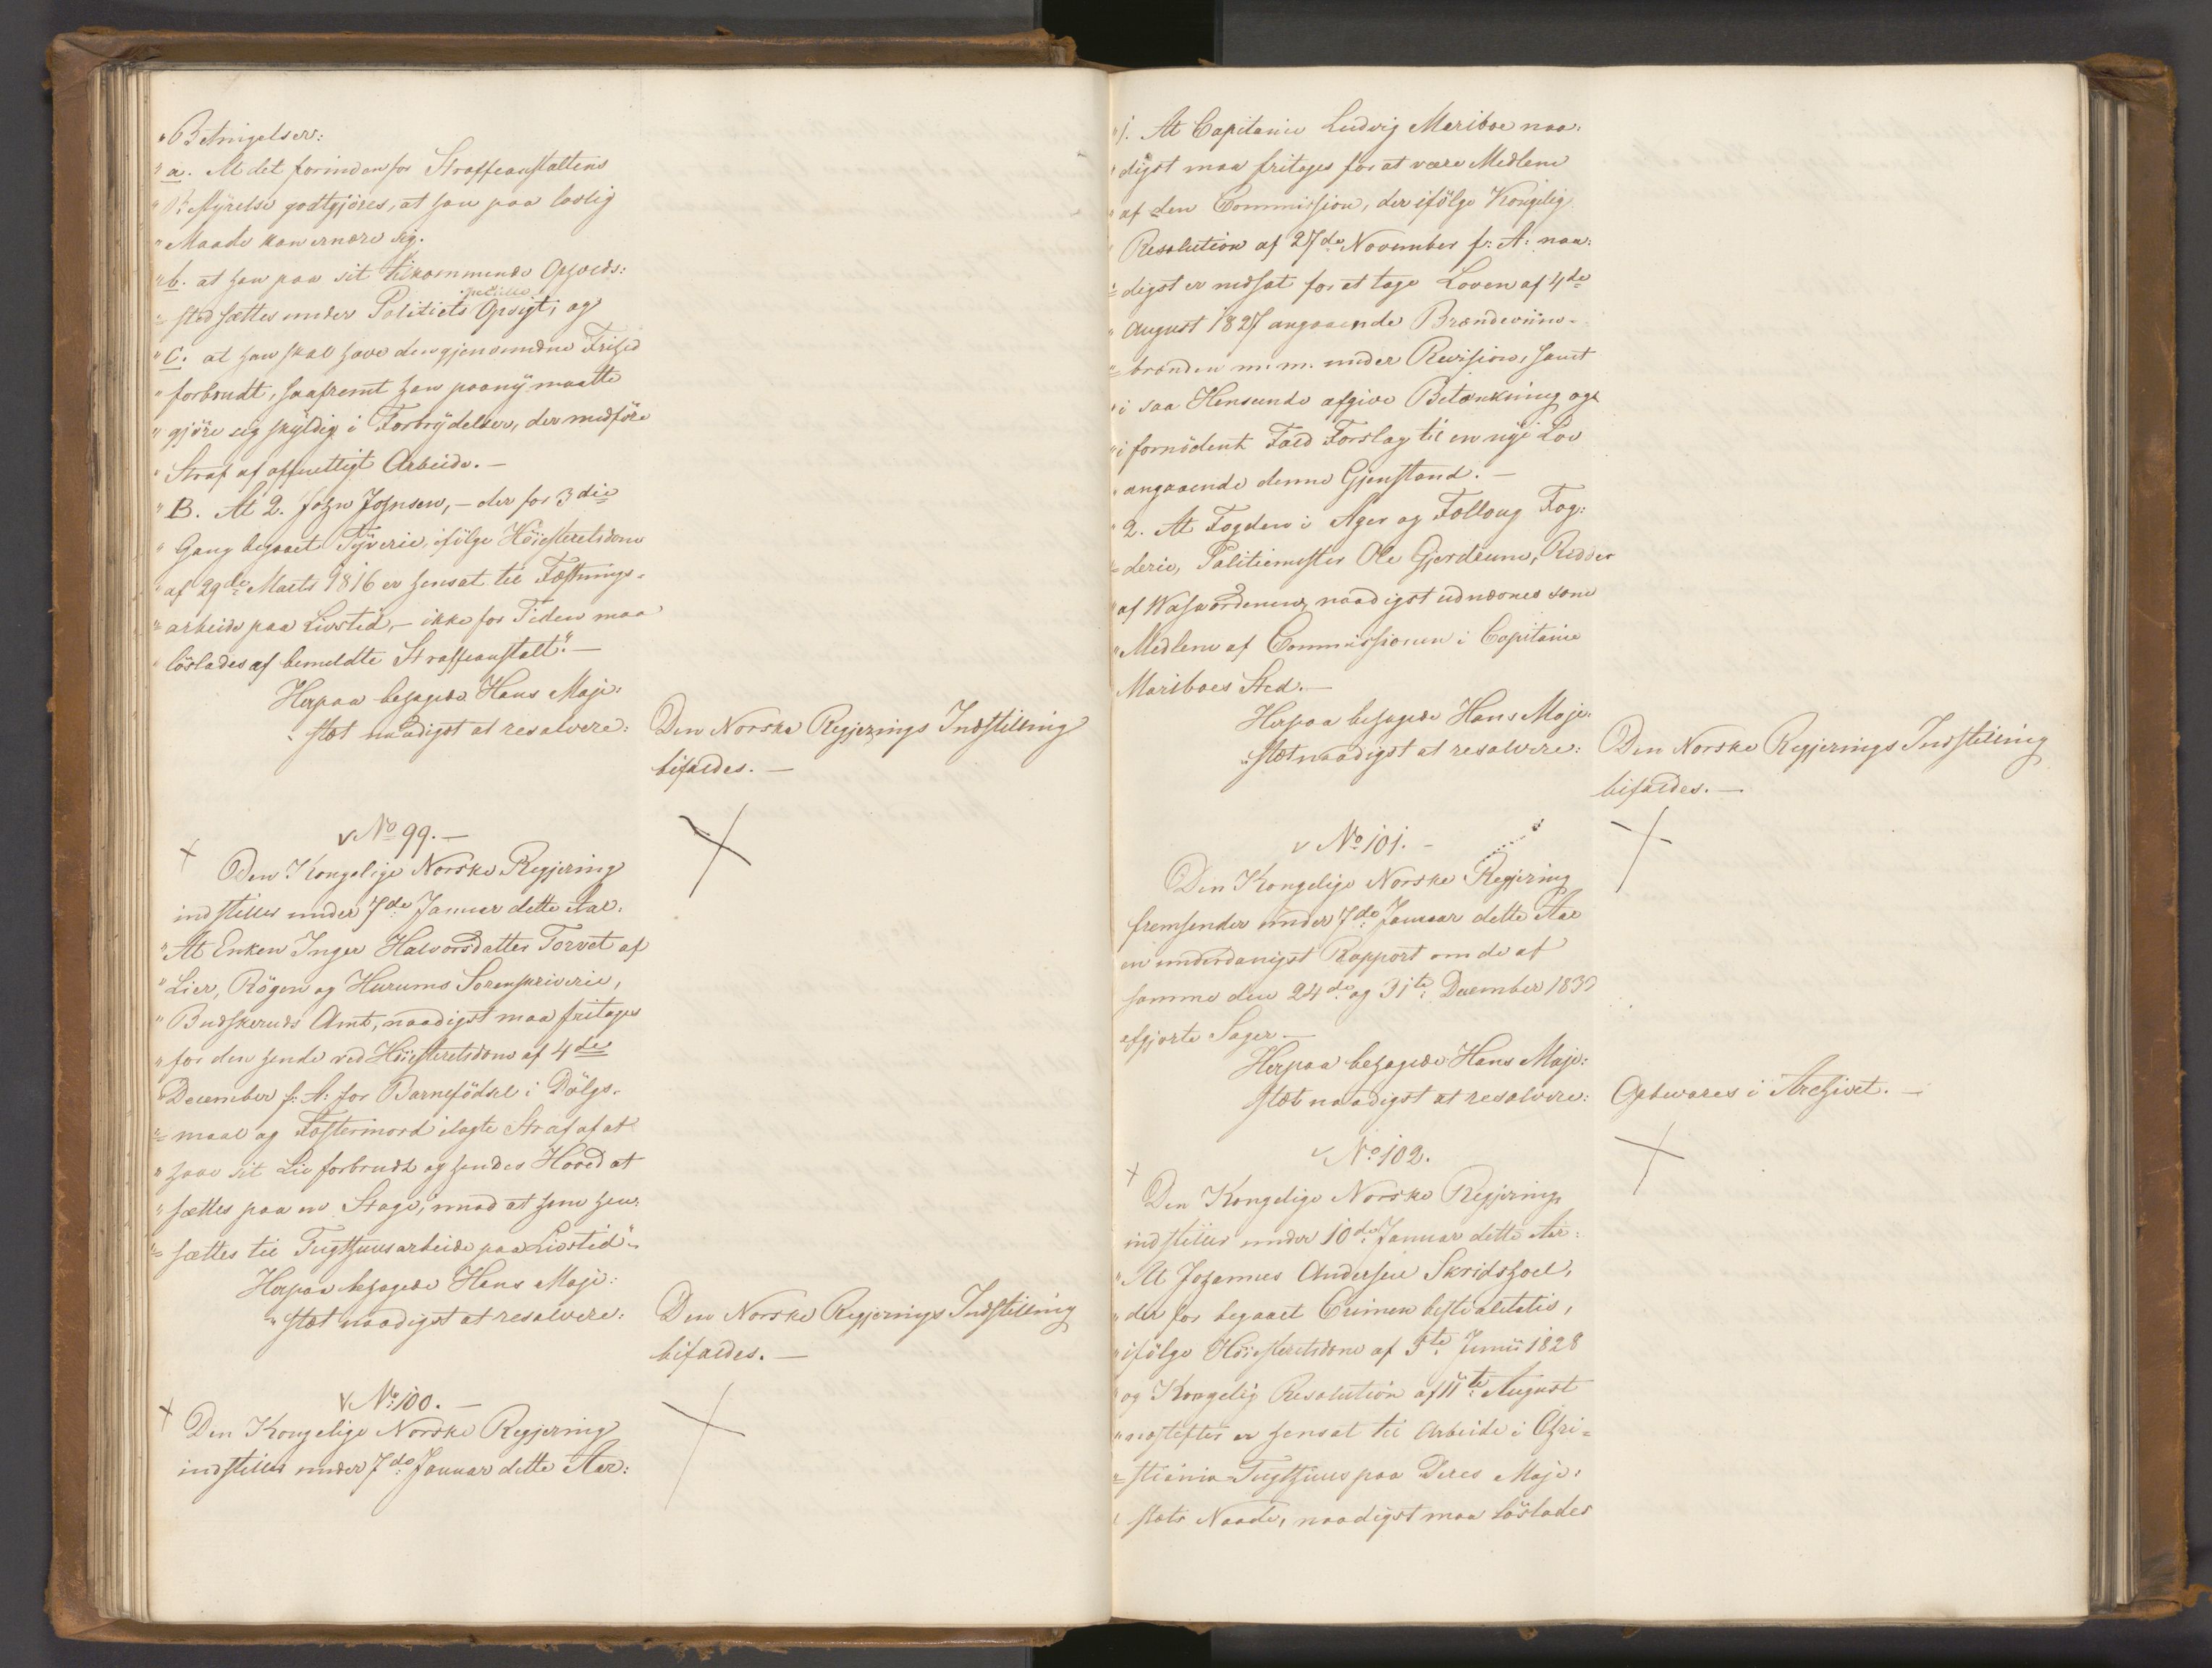 "Betingelser:
"a. At det forinden for Straffeanstaltens
"Bestÿrelse godtgjöres, at han paa lovlig
"Maade kan ernære sig.
"b. at han paa sit tilkommende Opholds:
"-sted sættes under Politiets specielle Opsigt; og
"c. at han skal have den gjenvundne Frihed
"forbrudt, saafremt han paanÿ maatte
"gjöre sig skÿldig i Forbrÿdelser, der medföre
"Straf af offentligt Arbeide. —
"B. At 2. John Johnsen, — der for 3die
"Gang begaaet Tÿverie, ifölge Höiesteretsdom
"af 29de Marts 1816 er hensat til Fæstnings-
"-arbeide paa Livstid, — ikke for Tiden maa
"löslades af bemeldte Straffeanstalt". —
Herpaa behagede Hans Maje:
"stæt naadigst at resolvere:
Den Norske Regjerings Indstilling
bifaldes. —
v No 99. —
Den Kongelige Norske Regjering
indstiller under 7de Januar dette Aar:
"At Enken Inger Halvorsdatter Torvet af
"Lier, Rögen og Hurums Sorenskriverie,
"Budskeruds Amt, naadigst maa fritages
"for den hende ved Höiesteretsdom af 4de
"December f: A: for Barnefödsel i Dölgs-
"-maal og Fostermord ilagte Straf af at
"have sit Liv forbrudt og hendes Hoved at
"sættes paa en Stage, imod at hun hen-
"-sættes til Tugthuusarbeide paa Livstid". —
Herpaa behagede Hans Maje:
"stæt naadigst at resolvere:
Den Norske Regjerings Indstilling
bifaldes. —
v No 100. —
Den Kongelige Norske Regjering
indstiller under 7de Januar dette Aar:
"1. At Capitaine Ludvig Mariboe naa:
"digst maa fritages for at være Medlem
"af den Commission, der ifölge Kongelig
"Resolution af 27de November f: A: naa:
"-digst er nedsat for at tage Loven af 4de
"August 1827 angaaende Brændeviins-
"-brænden m: m. under Revision, samt
"i saa Henseende afgive Betænkning og
"i fornödent Fald Forslag til en nÿe Lov
"angaaende denne Gjenstand. —
"2. At Fogden i Ager og Follong Fog:
"-derie, Politiemester Ole Gjerdrum, Ridder
"af Wasaordenen, naadigst udnævnes som
"Medlem af Commissionen i Capitaine
Mariboes Sted. —
Herpaa behagede Hans Maje:
"stæt naadigst at resolvere:
Den Norske Regjerings Indstilling
bifaldes. —
v No 101. -
Den Kongelige Norske Regjering
fremsender under 7de Januar dette Aar
en underdanigst Rapport om de af
samme den 24de og 31te December 1830
afgjorte Sager. —
Herpaa behagede Hans Maje:
stæt naadigst at resolvere:
Opbevares i Archivet. —
v No 102.
Den Kongelige Norske Regjering
indstiller under 10de Januar dette Aar:
"At Johannes Andersen Skridshoel,
"der for begaaet Crimen bestialitatis,
"ifölge Höiesteretsdom af 5te Junii 1828
"og Kongelig Resolution af 11te August
"næstefter er hensat til Arbeide i Chri-
"-stiania Tugthuus paa Deres Maje:
"stæts Naade, naadigst maa löslades